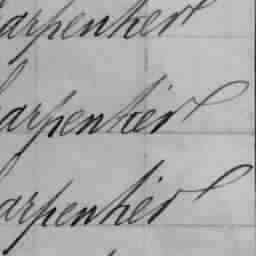 arpenter
arpentier
arpentier